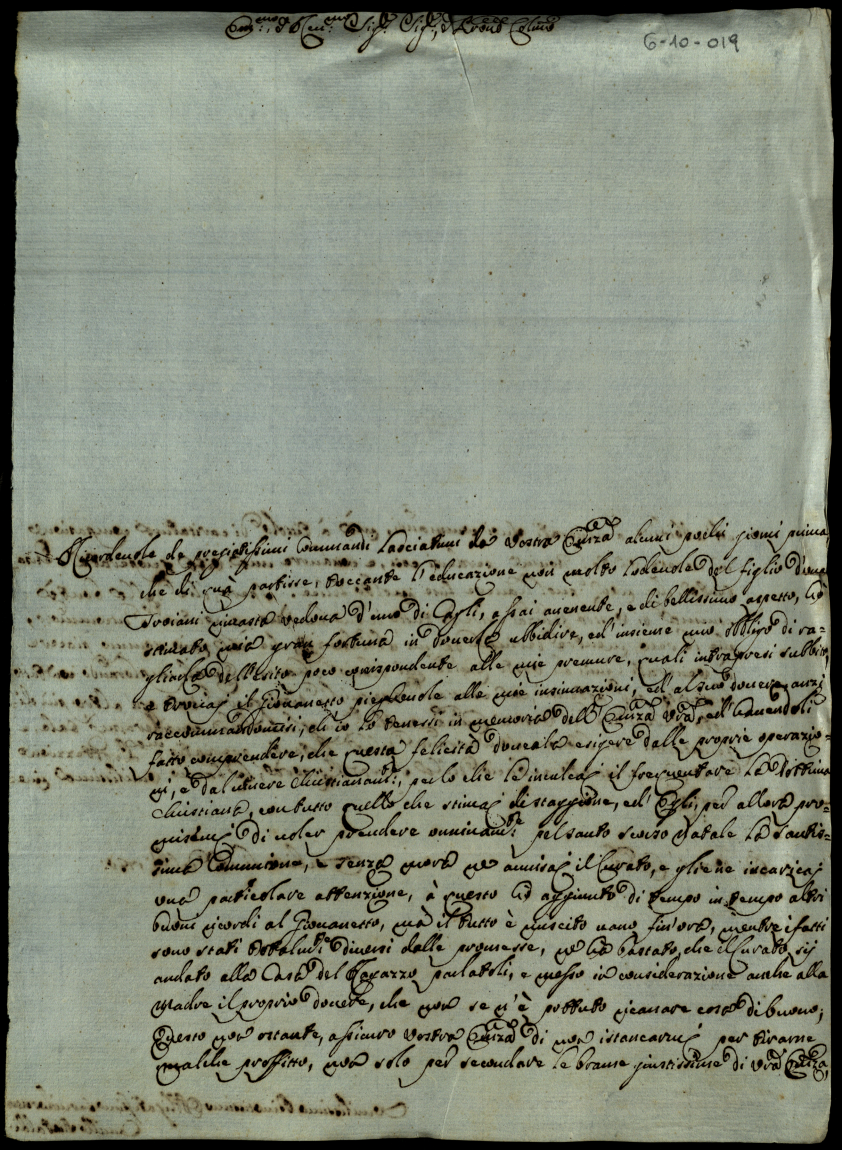 Em.mo, e Rev.mo Sig.r, Sig.r, e P.rone Col.mo
6-10-019
Ricordevole de pregiatissimi Commandi lasciatimi da Vostra Em.za alcuni pochi giorni prima,
che di quà partisse, toccante l'educazione non molto lodevole del figlio d'una
Troiani rimasta vedova d'uno di Cagli, assai avenente, e di bellissimo aspetto, hò
stimato mia gran fortuna in doverla ubbidire, ed' insieme mio obbligo di ra=
gliarla dell'esito poco corrispondente alle mie premure, quali intrapresi subbito,
e trovai il Giovanetto pieghevole alle mie insinuazioni, ed' al suo dovere, anzi
raccomandandomisi, ch'io lo tenessi in memoria dell' Em.za Vrã, ed' havendoli
fatto comprendere, che questa felicità dovealà esigere dalle proprie operazio=
ni, e dal vivere Christianam.te, per lo che le inculcai il frequentare la Dottrina
Christiana, con tutto quello che stimai di staggione, ed' Egli, per allora pro=
misemi di voler prendere onninam.te pel santo scorso Natale la santis=
sima Communione, e senza mora ne avvisai il Curato, e gliene incaricai
una particolare attenzione, à questo hò aggiunto di tempo in tempo altri
buoni ricordi al Giovanetto, mà il tutto è riuscito vano fin'ora, mentre i fatti
sono stati totalm.te diversi dalle promesse, ne hà bastato, che il Curato sij
andato alla Casa del Ragazzo, parlatoli, e messo in considerazione anche alla
Madre il proprio dovere, che non se n'è pottuto ricavare cosa di buono;
Questo non ostante, assicuro Vostra Em.za di non istancarmi per tirarne
qualche proffitto, non solo per secondare le brame giustissime di Vrã Em.za,